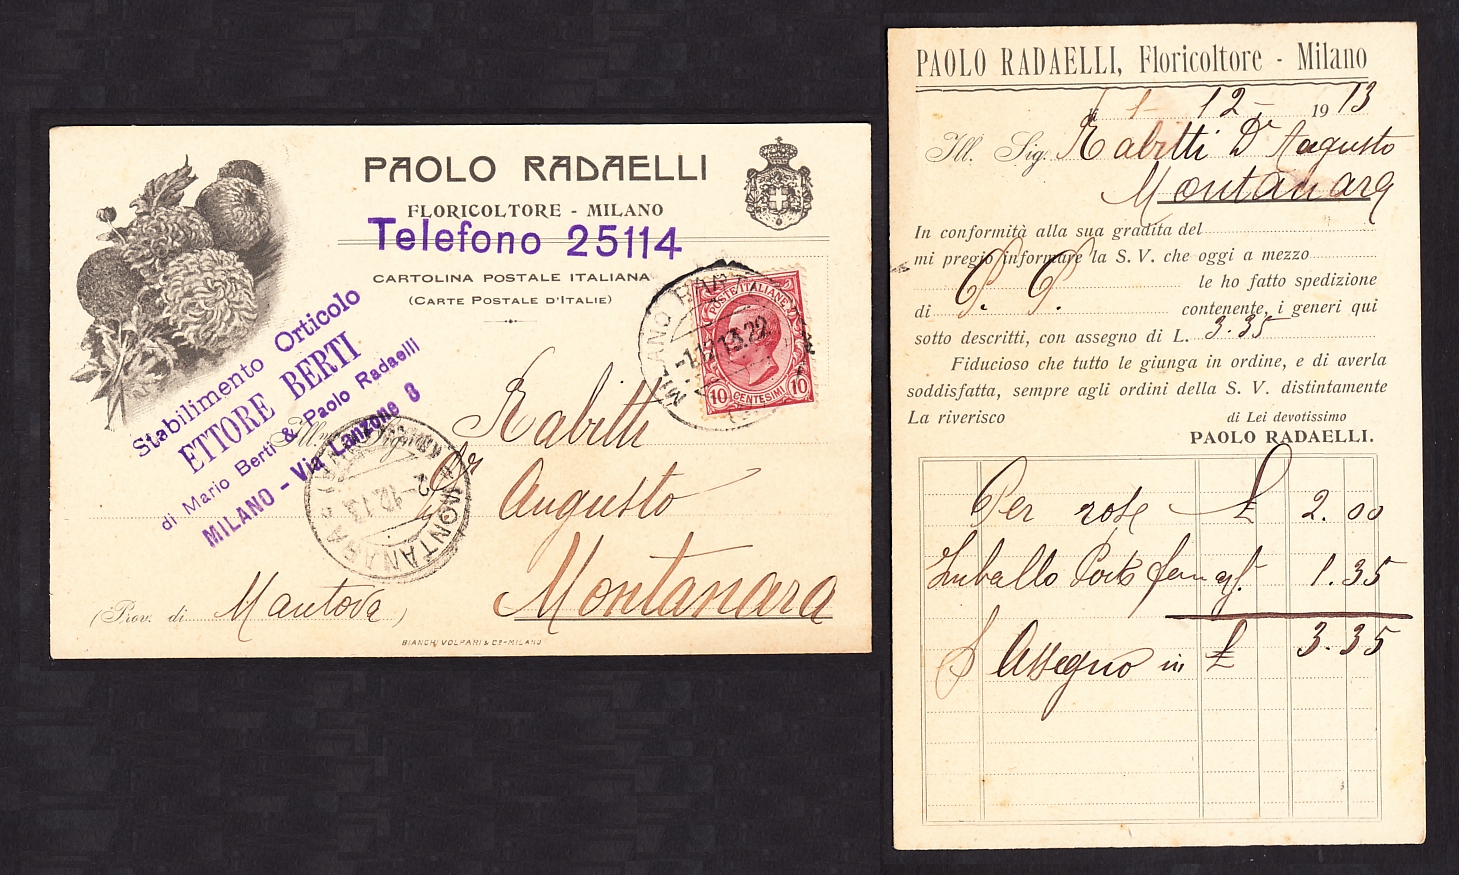 PAOLO RADAELLI
FLORICOLTORE - MILANO
Telefono 25114
CARTOLINA POSTALE ITALIANA
(CARTE POSTALE D'ITALIE)
Stabilimento Orticolo
ETTORE BERTI
di Mario Berti & Paolo Radaelli
MILANO - Via Lanzone 8
POSTE ITALIANE
10 CENTESIMI 10
MILANO
-1.12.13.22
MONTANARA
2-12.13
Rabitti
Dr
Augusto
Montanara
(Prov. di Mantova)
BIANCHI, VOLPARI & Co-MILANO
PAOLO RADAELLI, Floricoltore - Milano
li 1- 12- 1913
Ill. Sig. Rabitti Dr Augusto
Montanara
In conformità alla sua gradita del
mi pregio informare la S. V. che oggi a mezzo
P. P. le ho fatto spedizione
di contenente, i generi qui
sotto descritti, con assegno di L. 3.35
Fiducioso che tutto le giunga in ordine, e di averla
soddisfatta, sempre agli ordini della S. V. distintamente
La riverisco di Lei devotissimo
PAOLO RADAELLI.
Per rose £ 2.00
Imballo Porto 1.35
Assegno in £ 3.35